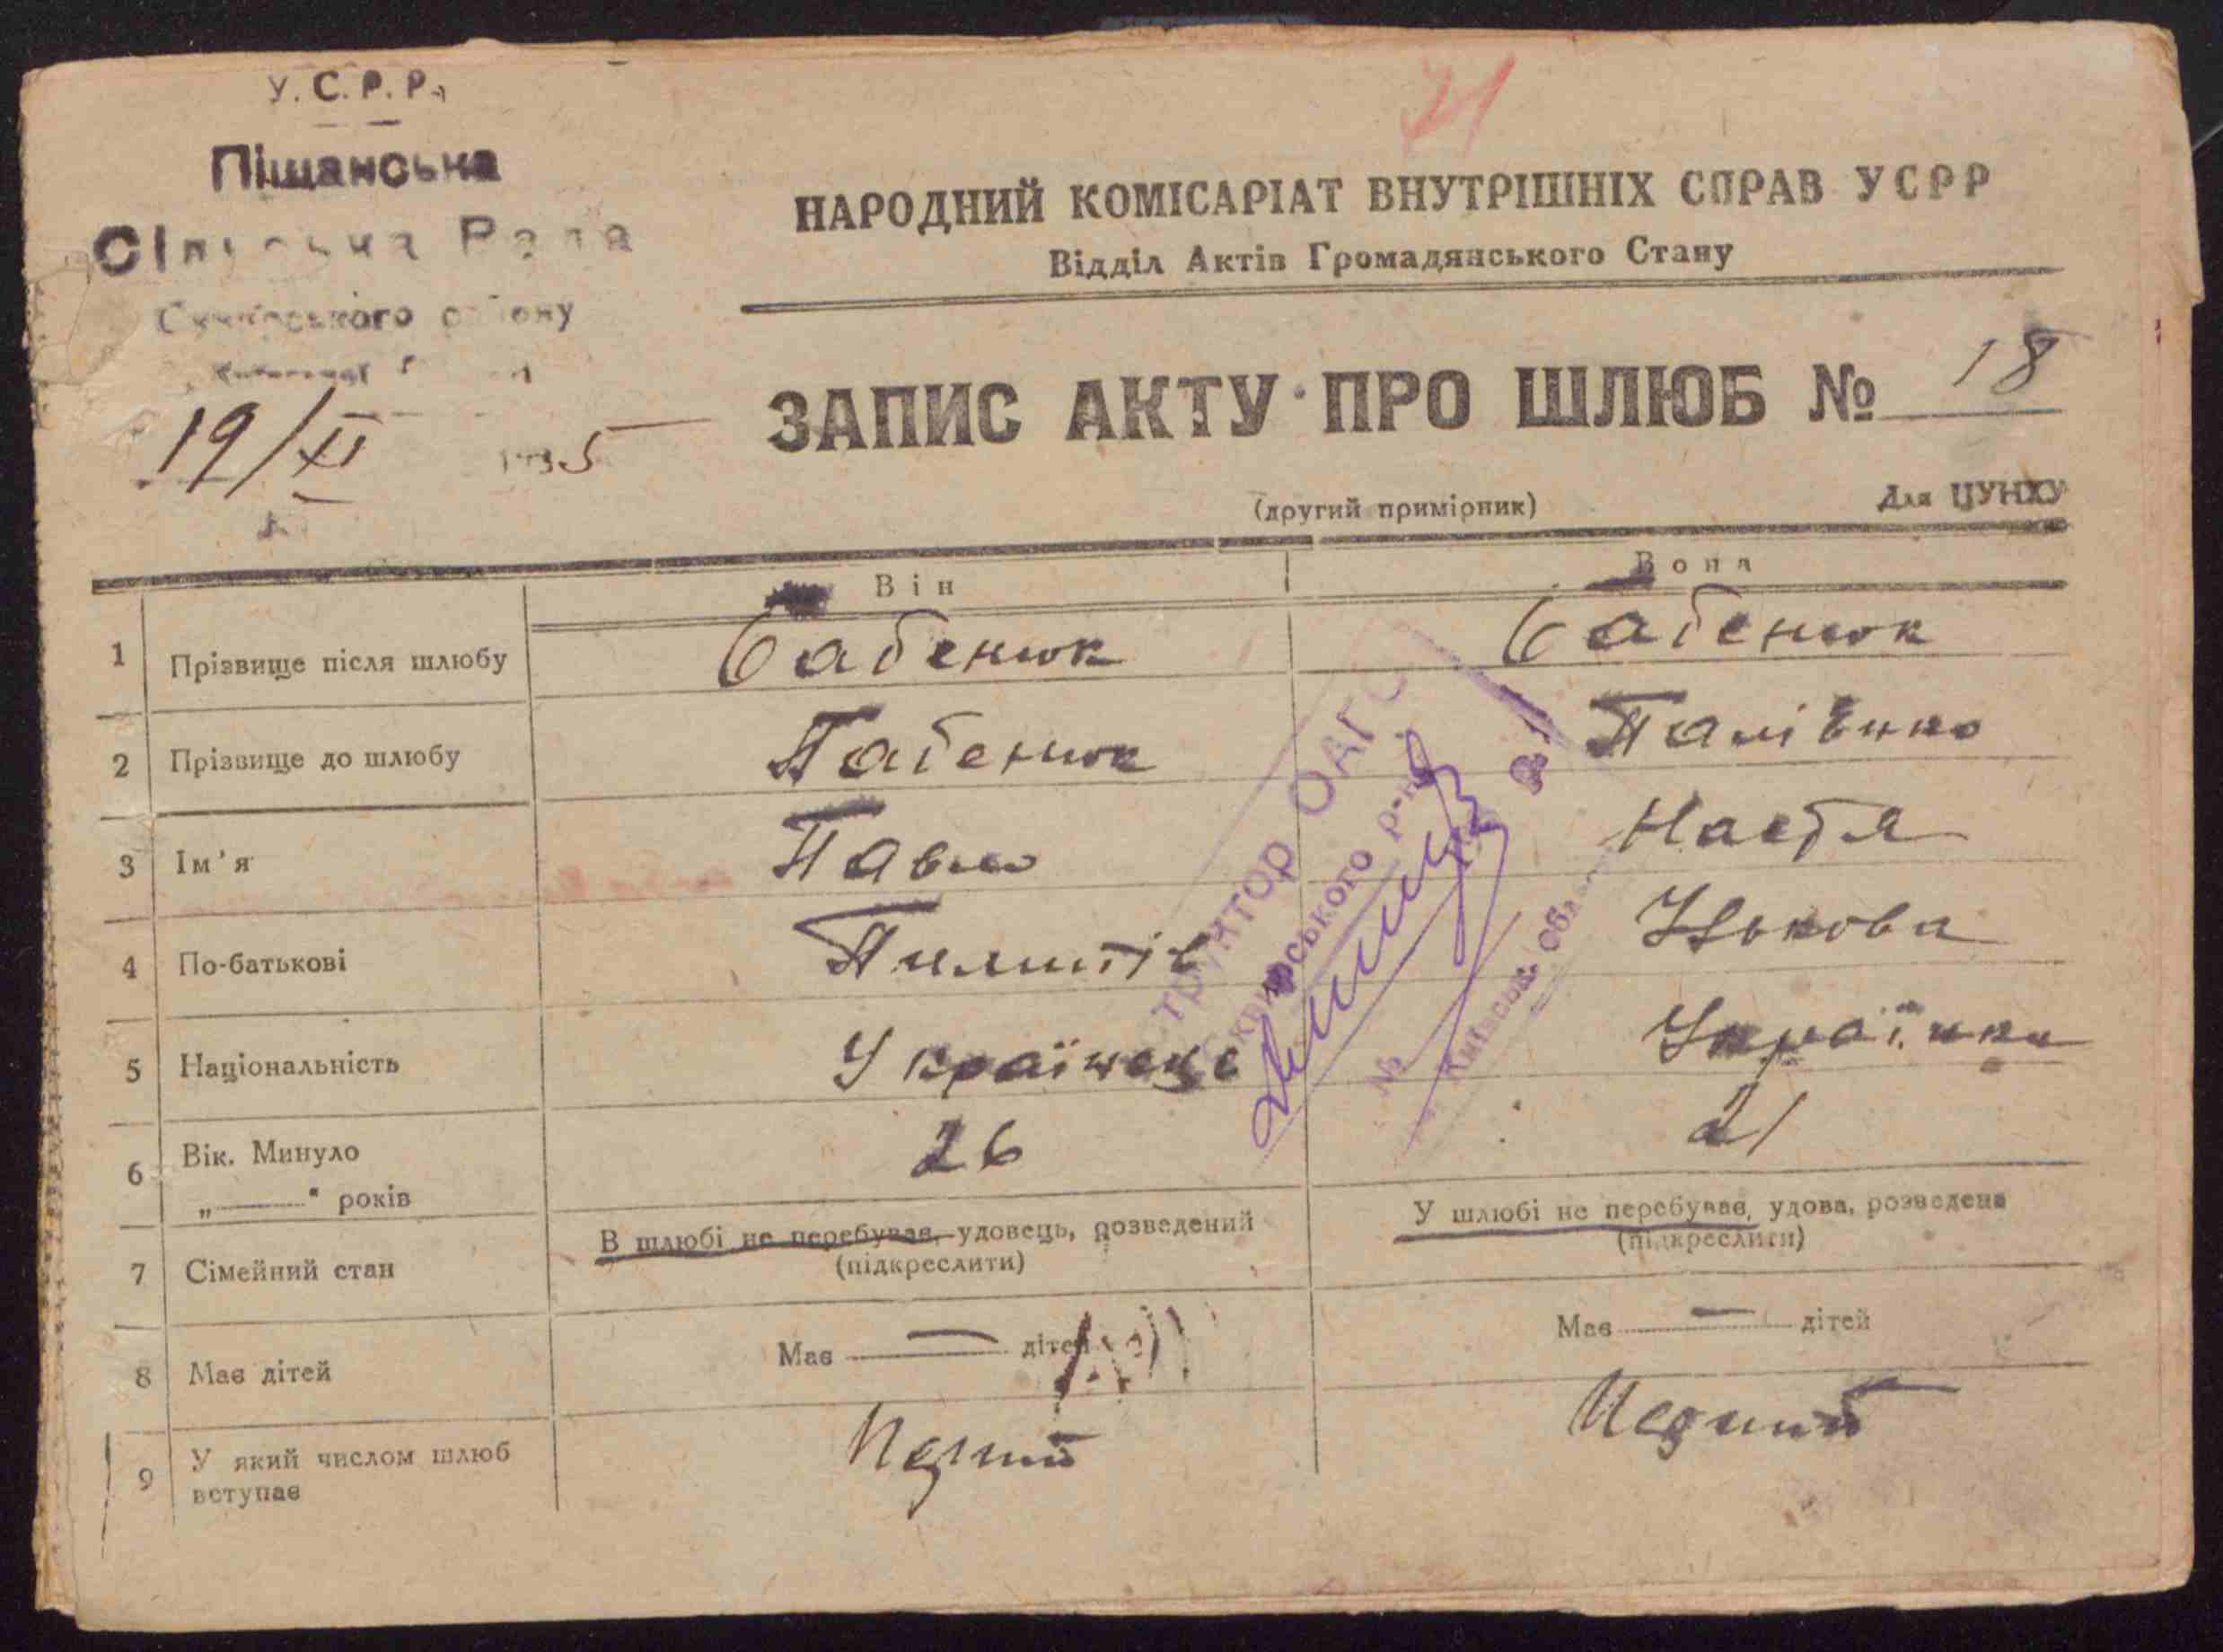 У.С.Р.Р.
Піщанська
Сільська Рада
Сквирського району
19/XI 1935
71
НАРОДНИЙ КОМІСАРІАТ ВНУТРІШНІХ СПРАВ УСРР
Відділ Актів Громадянського Стану
ЗАПИС АКТУ ПРО ШЛЮБ № 18
(другий примірник) Для ЦУНХУ
Він Вона
1 Прізвище після шлюбу Бабенюк Бабенюк
2 Прізвище до шлюбу Бабенюк
3 Ім'я Павло Настя
4 По-батькові Пилипів
5 Національність Українець Українка
6 Вік. Минуло „——“ років 26 21
7 Сімейний стан В шлюбі не перебував, удовець, розведений (підкреслити) У шлюбі не перебував, удова, розведена (підкреслити)
8 Має дітей Має — дітей Має — дітей
9 У який числом шлюб вступає
ОАГС
Сквирського р-ну
№
Київської Обл.